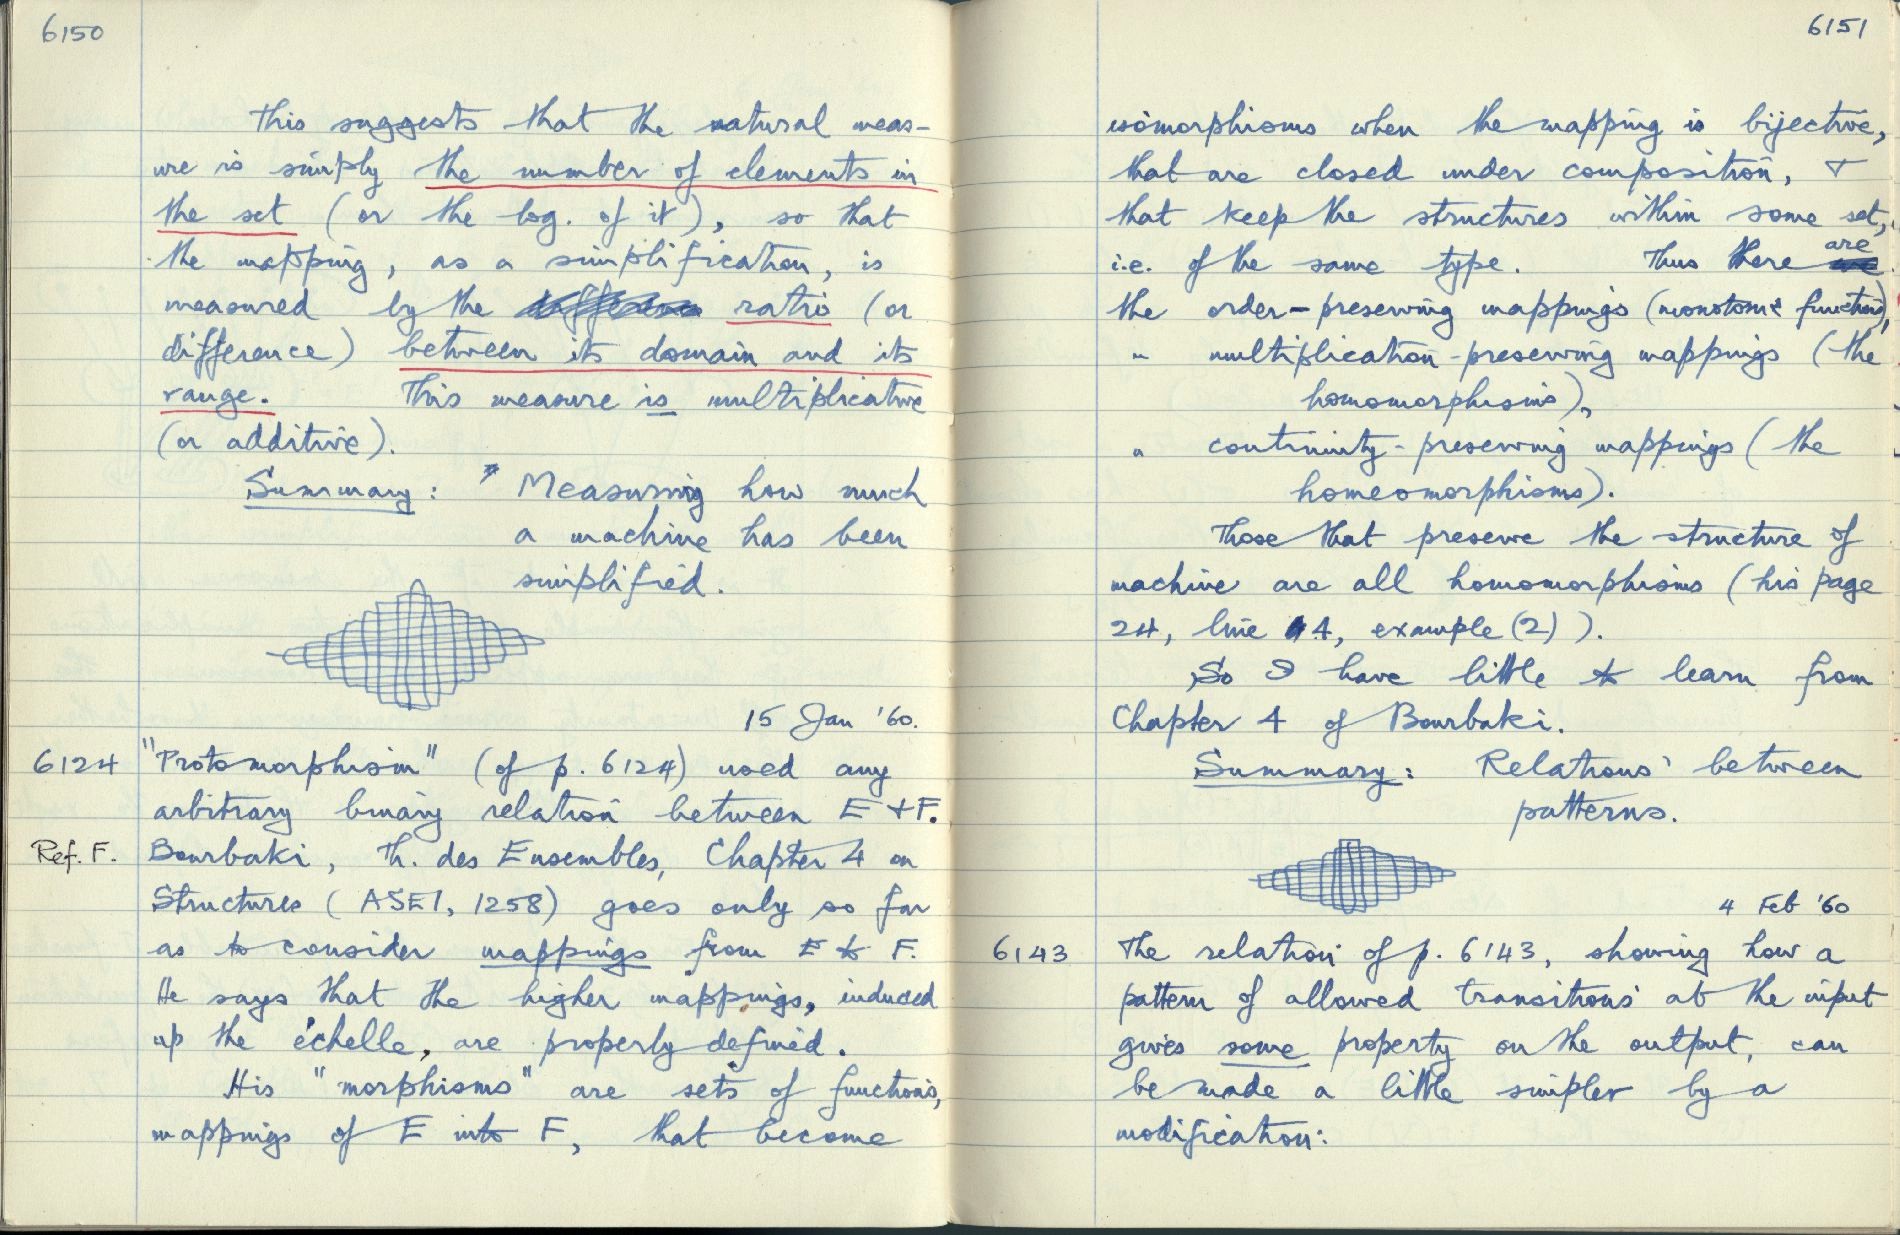 6150
This suggests that the natural meas-
ure is simply the number of elements in
the set (or the log. of it), so that
the mapping, as a simplification, is
measured by the ratio (or
difference) between its domain and its
range. This measure is multiplicative
(or additive).
Summary: Measuring how much
a machine has been
simplified.
15 Jan '60.
6124 "Protomorphism" (of p. 6124) used any
arbitrary binary relation between E + F.
Ref. F. Bourbaki, Th. des Ensembles, Chapter 4 on
Structures (ASEI, 1258) goes only so far
as to consider mappings from E to F.
He says that the higher mappings, induced
up the échelle, are properly defined.
His "morphisms" are sets of functions,
mappings of E into F, that become
6151
isomorphisms when the mapping is bijective,
that are closed under composition, +
that keep the structures within some set,
i.e. of the same type. Thus there are
the order-preserving mappings (monotonic functions),
" multiplication-preserving mappings (the
homomorphisms),
" continuity-preserving mappings (the
homeomorphisms).
Those that preserve the structure of
machine are all homomorphisms (his page
24, line 4, example (2)).
So I have little to learn from
Chapter 4 of Bourbaki.
Summary: Relations between
patterns.
4 Feb '60
6143 The relation of p. 6143, showing how a
pattern of allowed transitions at the input
gives some property on the output, can
be made a little simpler by a
modification: